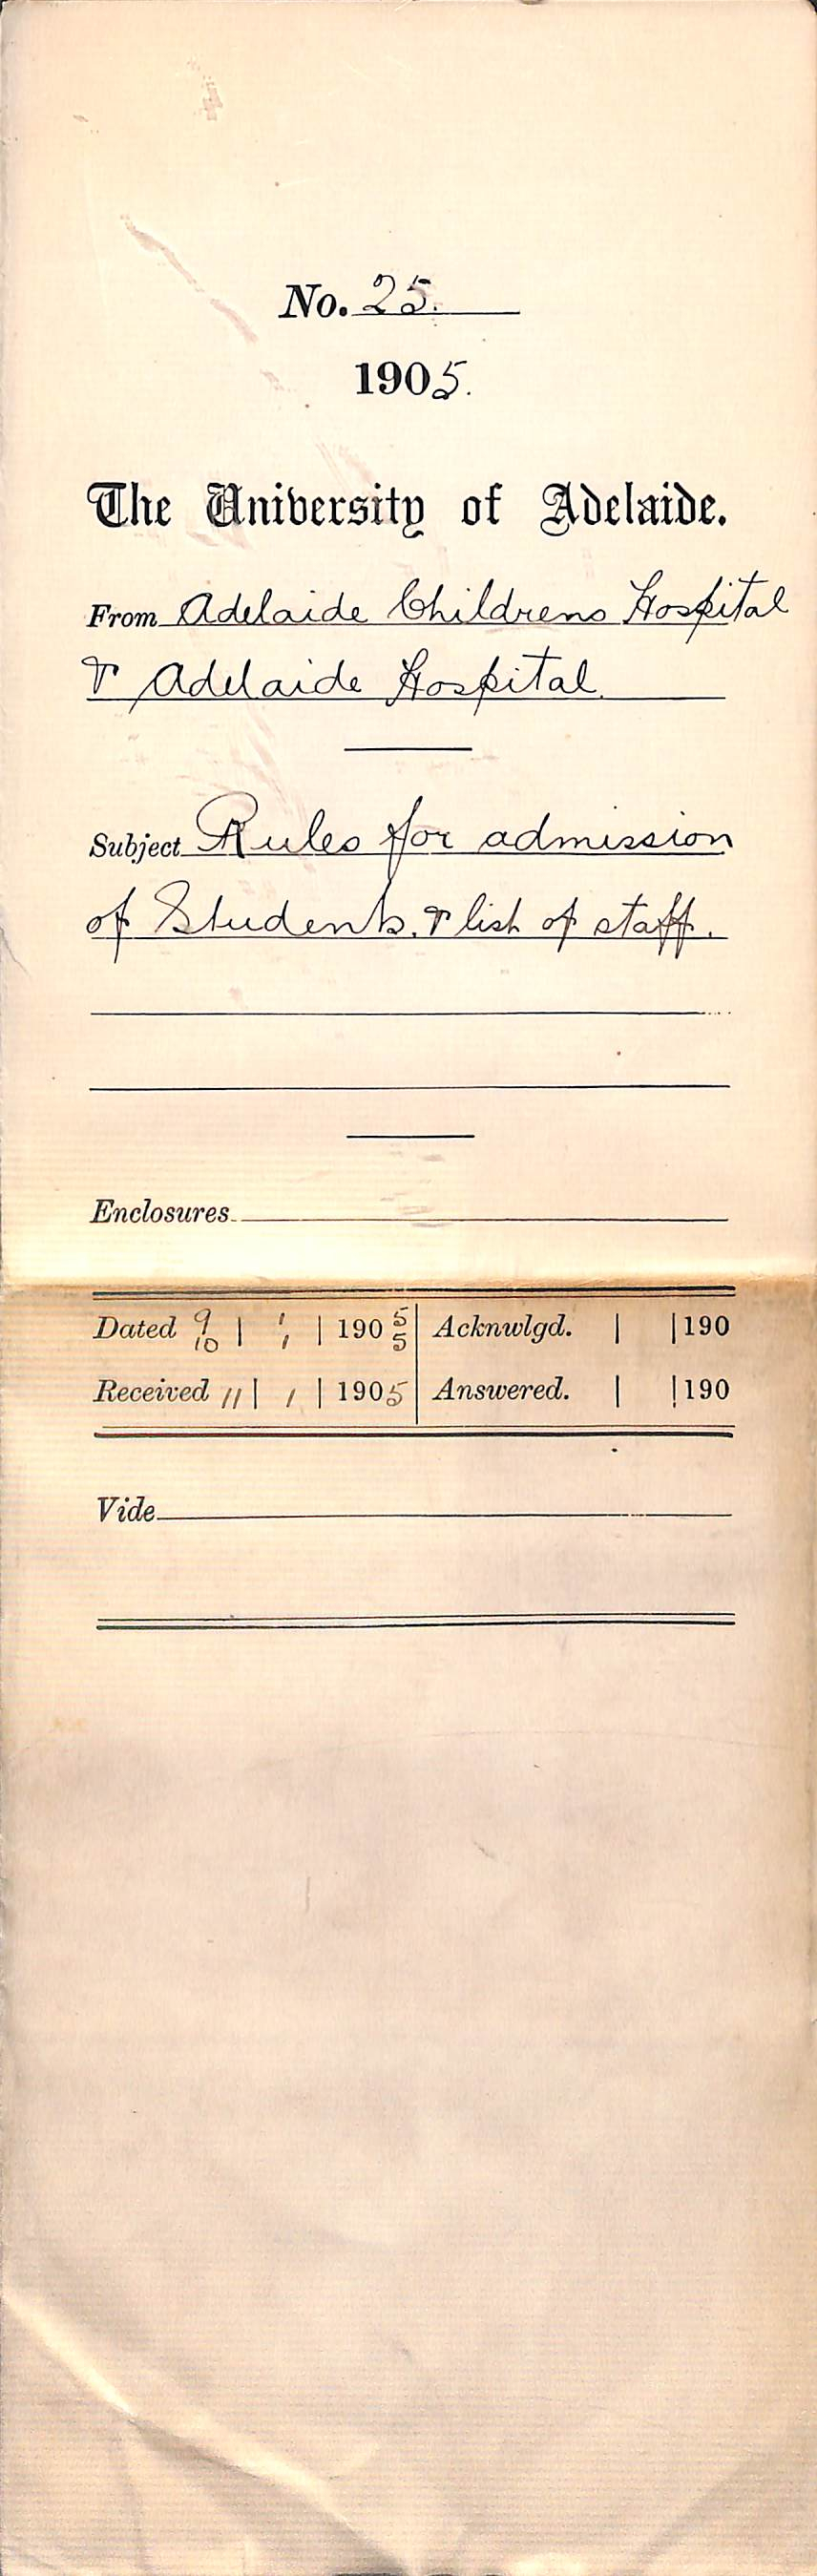 No. 25.
1905.
The University of Adelaide.
From Adelaide Childrens Hospital
& Adelaide Hospital.
Subject Rules for admission
of Students. & list of staff.
Enclosures
Dated 9 | 1 | 1905 Acknwlgd. | |190
10 1 5
Received 11 | 1 | 1905 Answered. | |190
Vide